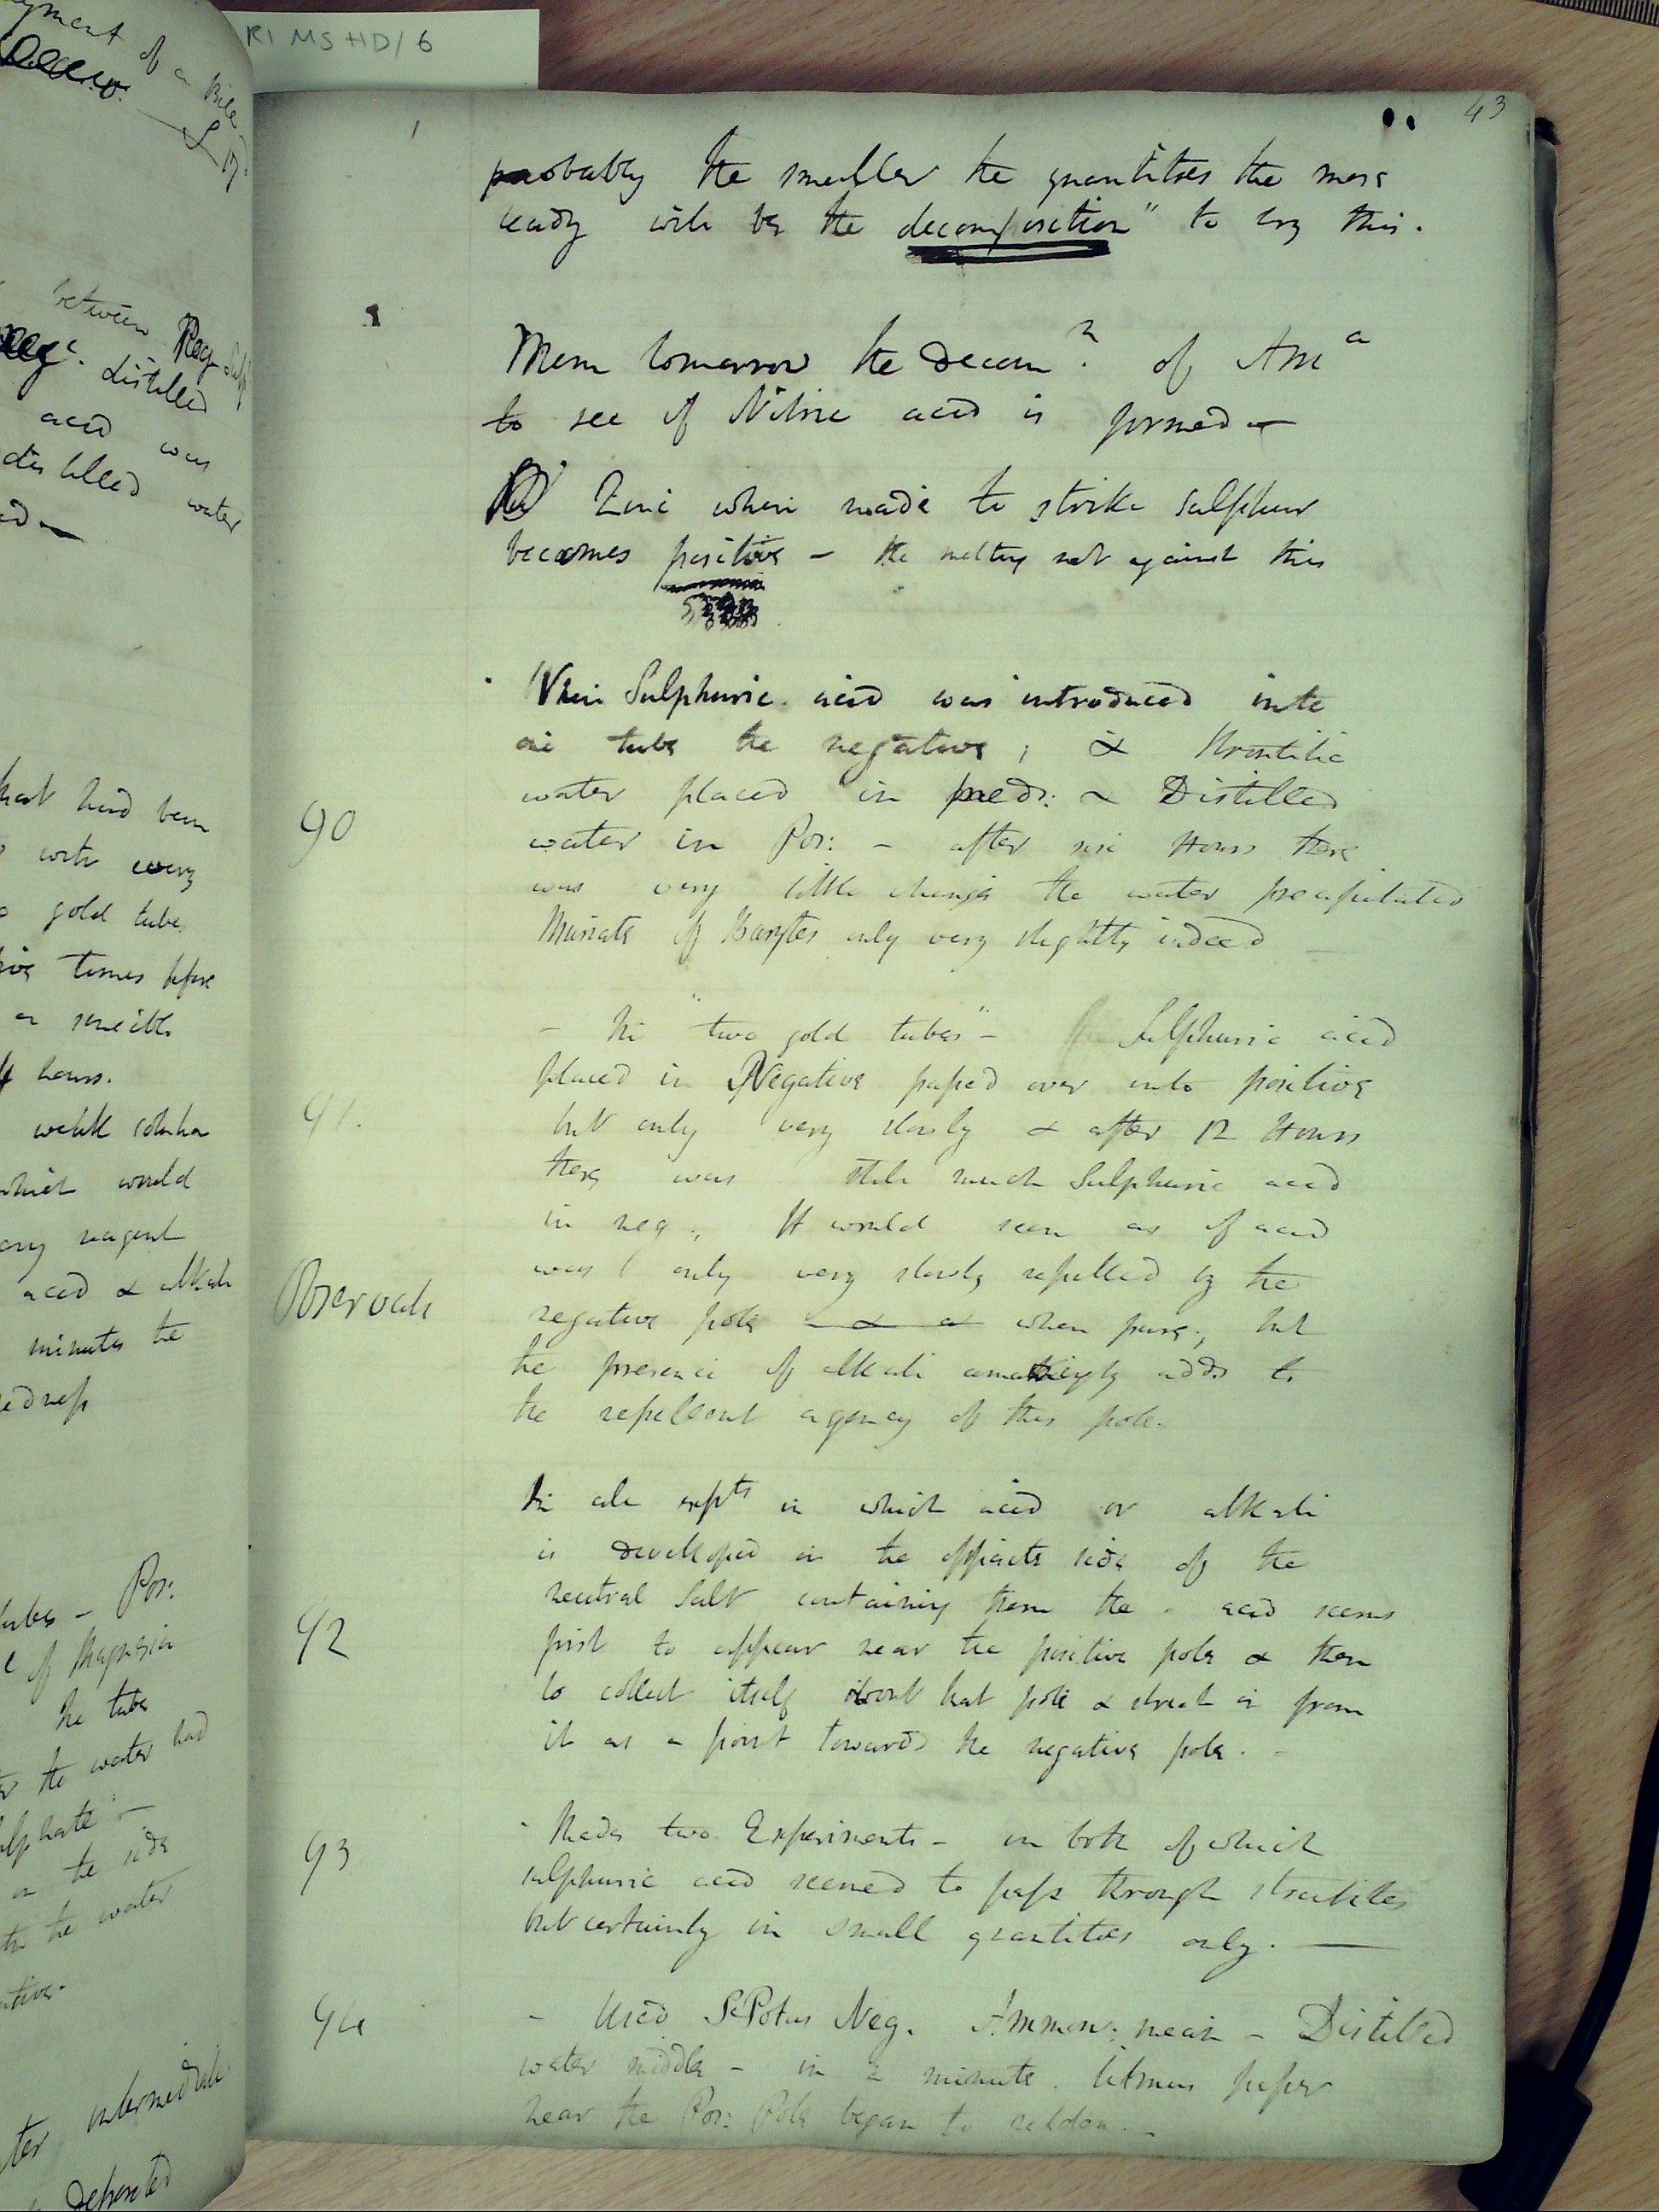 RI MS HD/6
43
probably the smaller the quantities the more
ready will be the decomposition" to try this.
Mem tomorrow the Decom n. of Am a
to see if Nitric acid is formed –
Zinc when made to strike sulphur
becomes positive – the melting not against this
When Sulphuric acid was introduced into
one tube the negative; & Strontitic
water placed in med: & Distilled
90
water in Pos: – after six Hours there
was very little change the water precipitated
Muriate of Barytes only very slightly indeed –
– In "two gold tubes" – Sulphuric acid
placed in Negative passed over into positive
91.
but only very slowly & after 12 Hours
there was still much Sulphuric acid
in neg:, It would seem as if acid
Observatn
was only very slowly repelled by the
negative pole when pure; but
the presence of alkali amazingly adds to
the repellent agency of this pole.
In all expts in which acid or alkali
is developed on the opposite side of the
neutral Salt containing them the acid seems
92
first to appear near the positive pole & then
to collect itself about that pole & streak in from
it as a point towards the negative pole. –
93
Made two Experiments – in both of which
sulphuric acid seemed to pass through strontites
but certainly in small quantities only. —
94
– Used S Potas Neg. Ammon: mean – Distilled
water middle – in 2 minute. litmus paper
near the Pos: Pole began to redden. –
between
distilled
acid was
distilled water
that had been
with every
gold tube
times before
a sensible
hours.
weak solution
which would
any reagent
acid & alkali
minutes the
redness
tubes – Pos:
of Magnesia
the tube
the water had
sulphate –
on the side
the water
intermediate